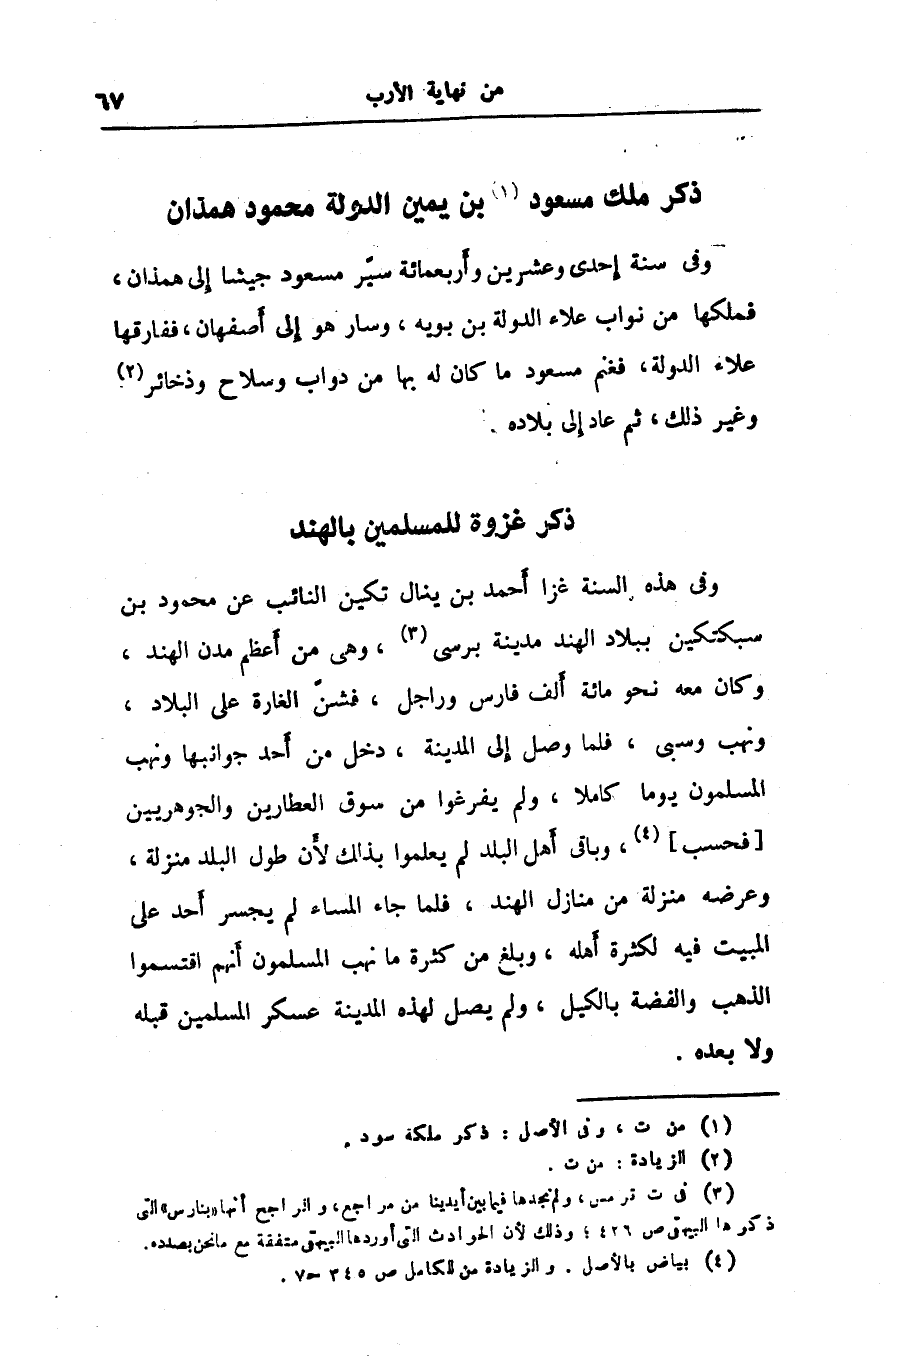 من نهاية الأرب
٦٧
ذكر ملك مسعود (١) بن يمين الدولة محمود همذان
وفى سنة إحدى وعشرين وأربعمائة سيّر مسعود جيشا إلى همذان ،
فملكها من نواب علاء الدولة بن بويه ، وسار هو إلى أصفهان ، ففارقها
علاء الدولة ، فغنم مسعود ما كان له بها من دواب وسلاح وذخائر (٢)
وغير ذلك ، ثم عاد إلى بلاده .
ذكر غزوة للمسلمين بالهند
وفى هذه السنة غزا أحمد بن ينال تكين النائب عن محمود بن
سبكتكين ببلاد الهند مدينة برسى (٣) ، وهى من أعظم مدن الهند ،
وكان معه نحو مائة ألف فارس وراجل ، فشنّ الغارة على البلاد ،
ونهب وسبى ، فلما وصل إلى المدينة ، دخل من أحد جوانبها ونهب
المسلمون يوما كاملا ، ولم يفرغوا من سوق العطارين والجوهريين
[ فحسب ] (٤) ، وباقى أهل البلد لم يعلموا بذلك لأن طول البلد منزلة ،
وعرضه منزلة من منازل الهند ، فلما جاء المساء لم يجسر أحد على
المبيت فيه لكثرة أهله ، وبلغ من كثرة ما نهب المسلمون أنهم اقتسموا
الذهب والفضة بالكيل ، ولم يصل لهذه المدينة عسكر المسلمين قبله
ولا بعده .
(١) من ت ، وفى الأصل : ذكر ملكة سود .
(٢) الزيادة : من ت .
(٣) فى ت ترمس ، ولم نجدها فيما بين أيدينا من مراجع ، والراجع أنها «بنارس» التى
ذكرها البيهقى ص ٤٢٦ ؛ وذلك لأن الحوادث التى أوردها البيهقى متفقة مع مانحن بصدده .
(٤) بياض بالأصل . والزيادة من للكامل ص ٣٤٥ حـ ٧ .